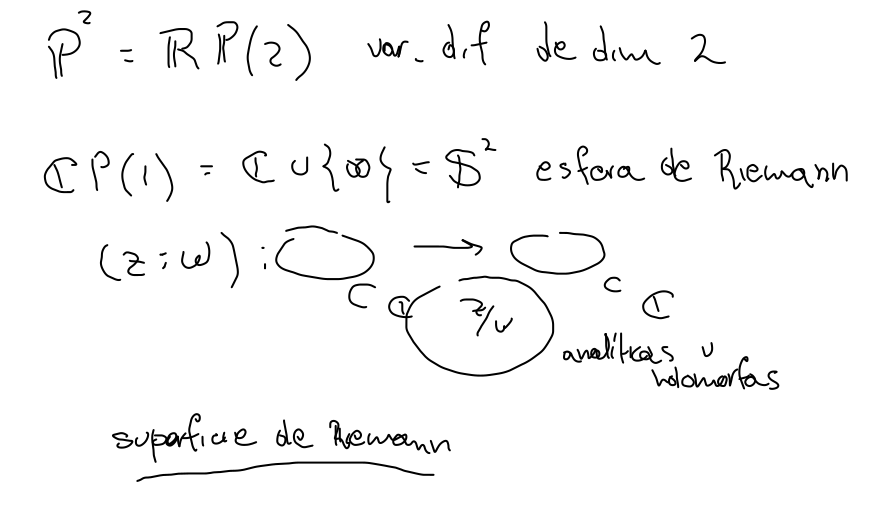 ℙ² = ℝℙ(2) var. dif de dim 2
ℂP(1) = ℂ ∪ {∞} = 𝕊² esfera de Riemann
(z : w) : →
⊂ ℂ z/w ⊂ ℂ
analíticas u
holomorfas
superficie de Riemann